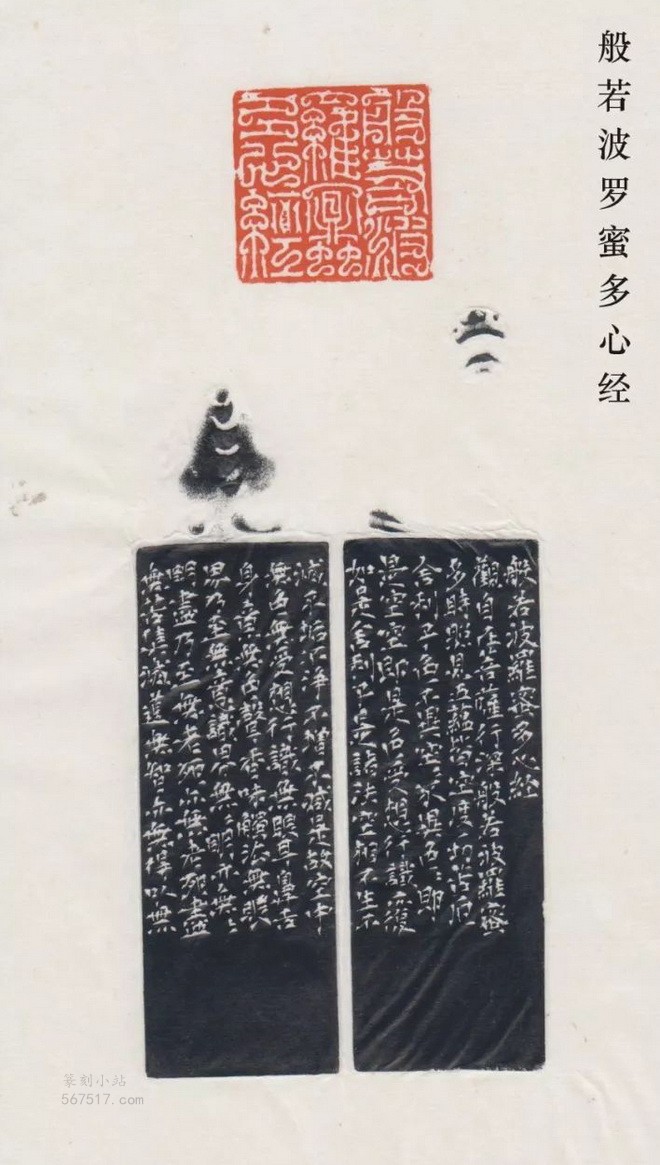 般若波罗蜜多心经
般若波
羅蜜
多心經
般若波羅蜜多心經
觀自在菩薩行深般若波羅蜜
多時照見五蘊皆空度一切苦厄
舍利子色不異空〻不異色〻即
是空空即是色受想行識亦復
如是舍利子是諸法空相不生不
滅不垢不淨不增不減是故空中
無色無受想行識無眼耳鼻舌
身意無色聲香味觸法無眼
界乃至無意識界無〻明亦無〻
明盡乃至無老死亦無老死盡
無苦集滅道無智亦無得以無
篆刻小站
567517.com